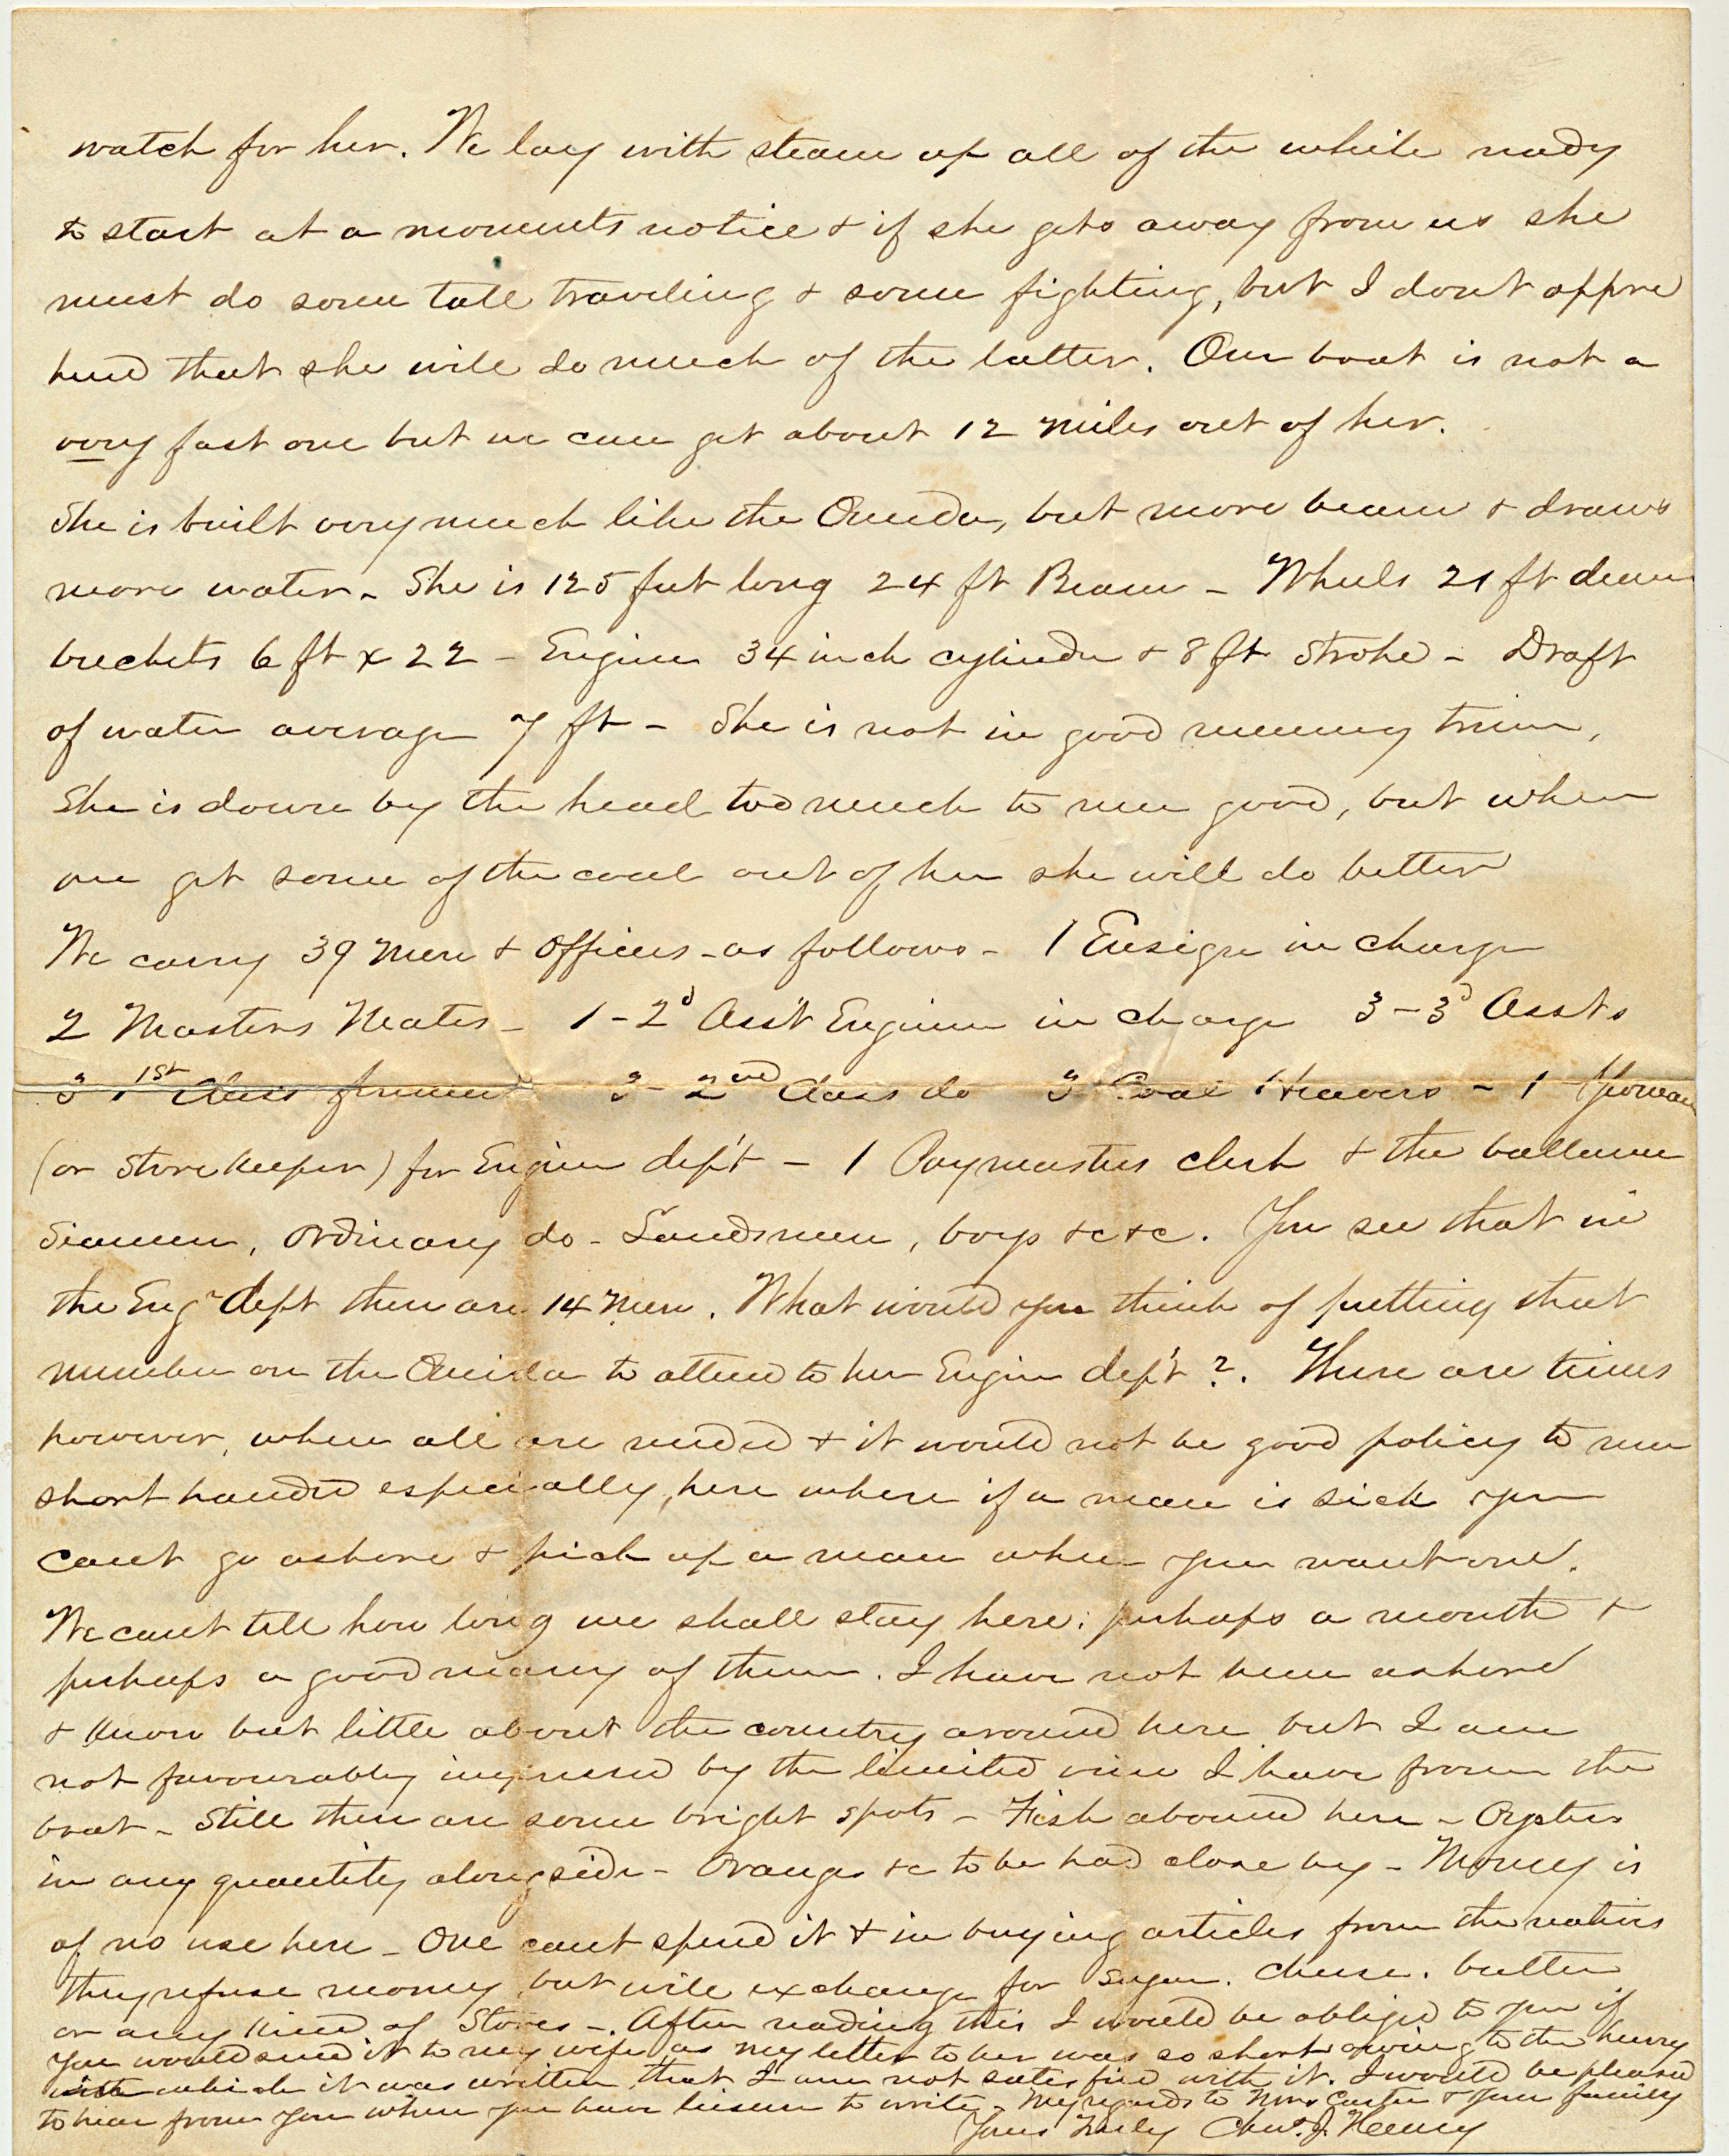 watch for her. We lay with steam up all of the while ready
to start at a moments notice & if she gets away from us she
must do some tall traveling & some fighting, but I dont appre
hend that she will do much of the latter. Our boat is not a
very fast one but we can get about 12 miles out of her.
She is built very much like the Oneida, but more beam & draws
more water - She is 125 feet long 24 ft Beam - Wheels 21 ft diam
buckets 6 ft x 22 - Engine 34 inch cylinder & 8 ft Stroke - Draft
of water average 7 ft - She is not in good running trim,
She is down by the head too much to run good, but when
we get some of the coal out of her she will do better
We carry 39 Men & Officers - as follows - 1 Ensign in charge
2 Masters Mates - 1 - 2d Ass't Engineer in charge 3 - 3d Assts
3 1st Class firemen 3 - 2nd Class do 3 Coal Heavers - 1 Yeoman
(or Store Keeper) for Engine dep't - 1 Paymasters clerk & the ballance
Seamen, Ordinary do - Landsmen, boys &c &c. You see that in
the Engr dept there are 14 Men. What would you think of putting that
number on the Oneida to attend to her Engine dep't?. There are times
however, when all are needed & it would not be good policy to run
short handed especially, here where if a man is sick you
cant go ashore & pick up a man when you want one.
We cant tell how long we shall stay here; perhaps a month &
perhaps a good many of them. I have not been ashore
& know but little about the country around here but I am
not favourably impressed by the limited view I have from the
boat - Still there are some bright spots - Fish abound here - Oysters
in any quantity alongside - Oranges &c to be had close by - Money is
of no use here - One cant spend it & in buying articles from the natives
they refuse money but will exchange for Sugar. Cheese. butter
or any kind of Stores -. After reading this I would be obliged to you if
you would send it to my wife, as my letter to her was so short owing to the hurry
with which it was written, that I am not satisfied with it. I would be pleased
to hear from you when you have leisure to write - My regards to Mrs Carter & your family
Yours Truly Chas. J. Henry